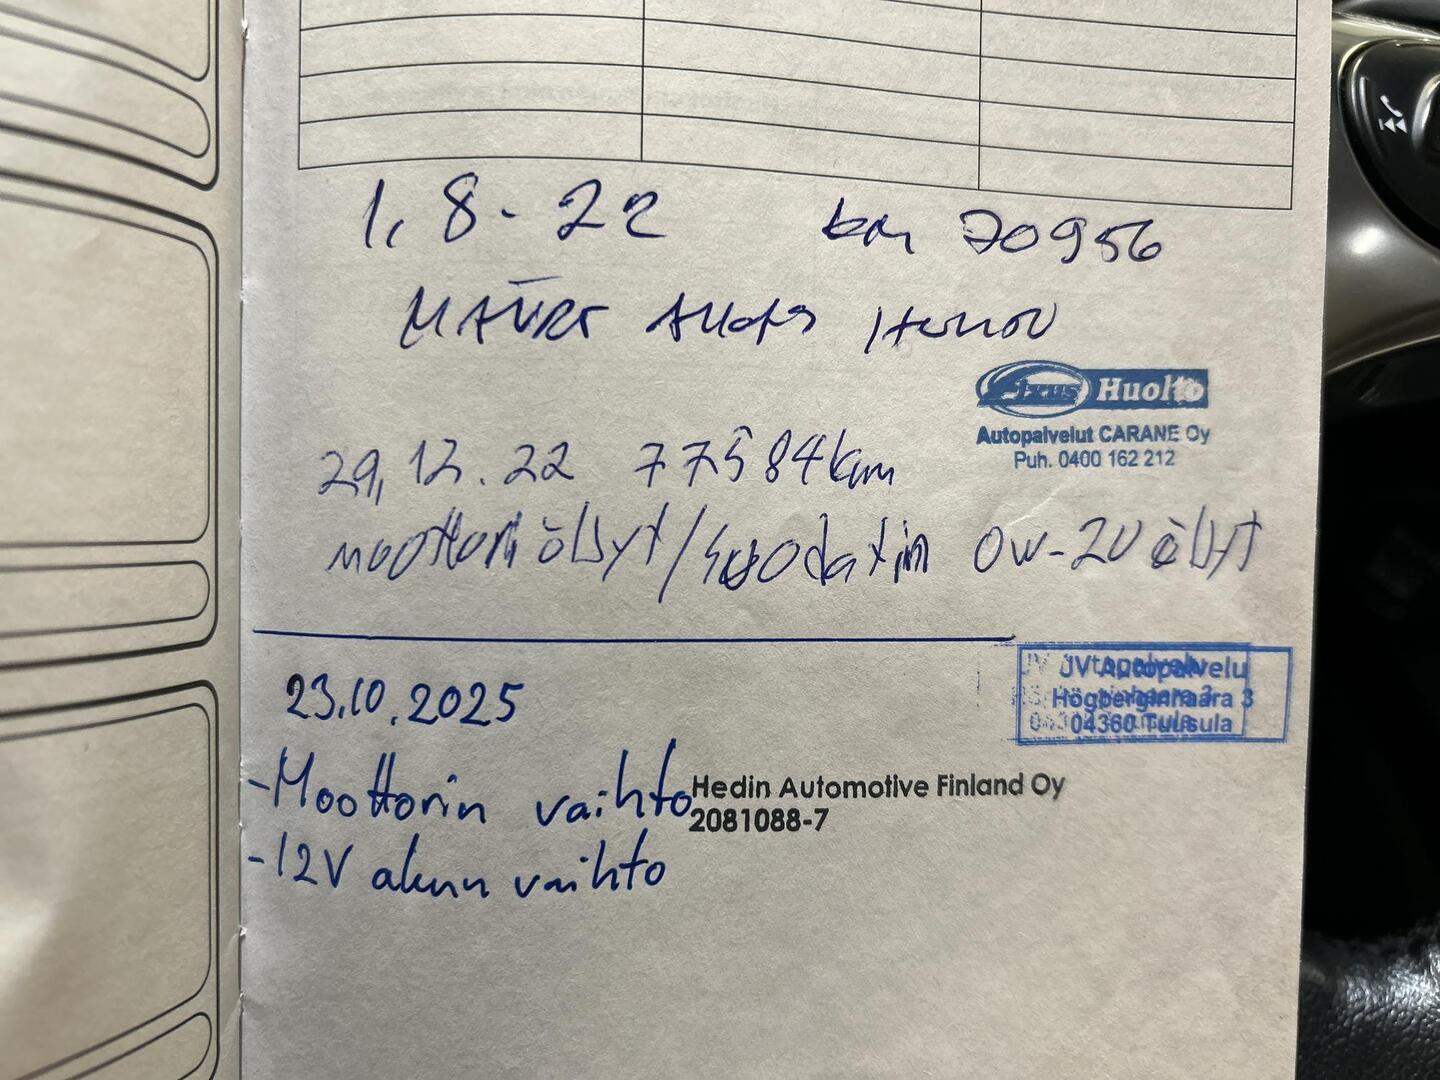 1, 8 - 22 km 70956
Huolto
Autopalvelut CARANE Oy
Puh. 0400 162 212
29, 12. 22 77584km
moottoriöljyt/suodatin 0w-20 öljyt
JV Autopalvelu
Högberginhaara 3
04360 Tuusula
23.10.2025
-Moottorin vaihto
Hedin Automotive Finland Oy
2081088-7
-12V akun vaihto